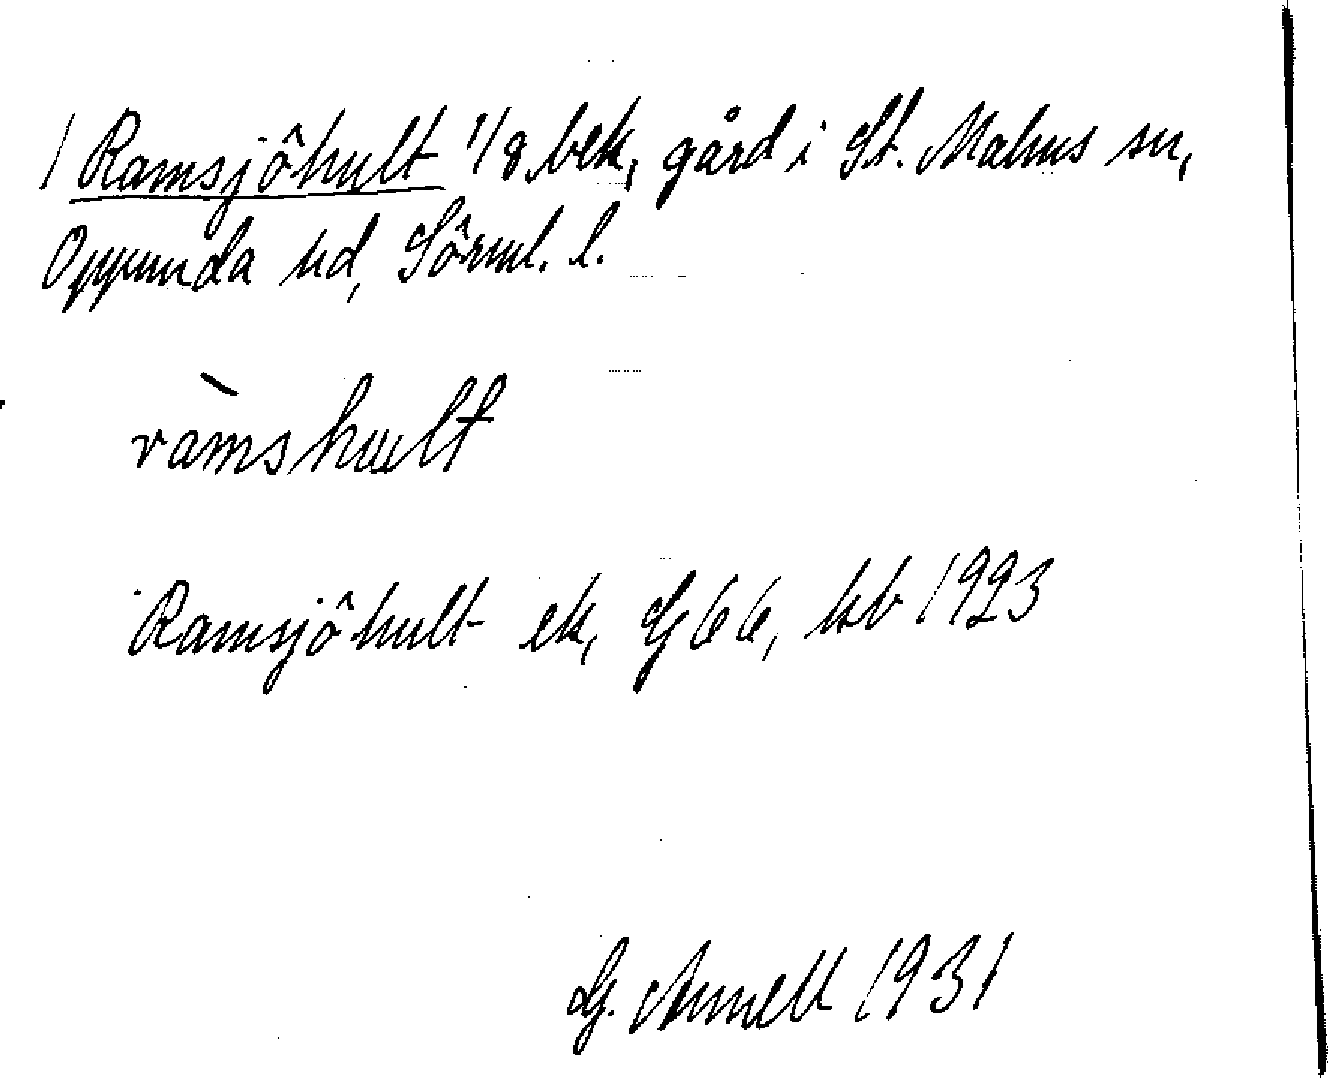 / Ramsjöhult 1/8 bek, gård i St. Malms sn,
Oppunda hd, Sörml. l.
ràmshult
Ramsjöhult ek, G 66, kb 1923
G. Annell 1931